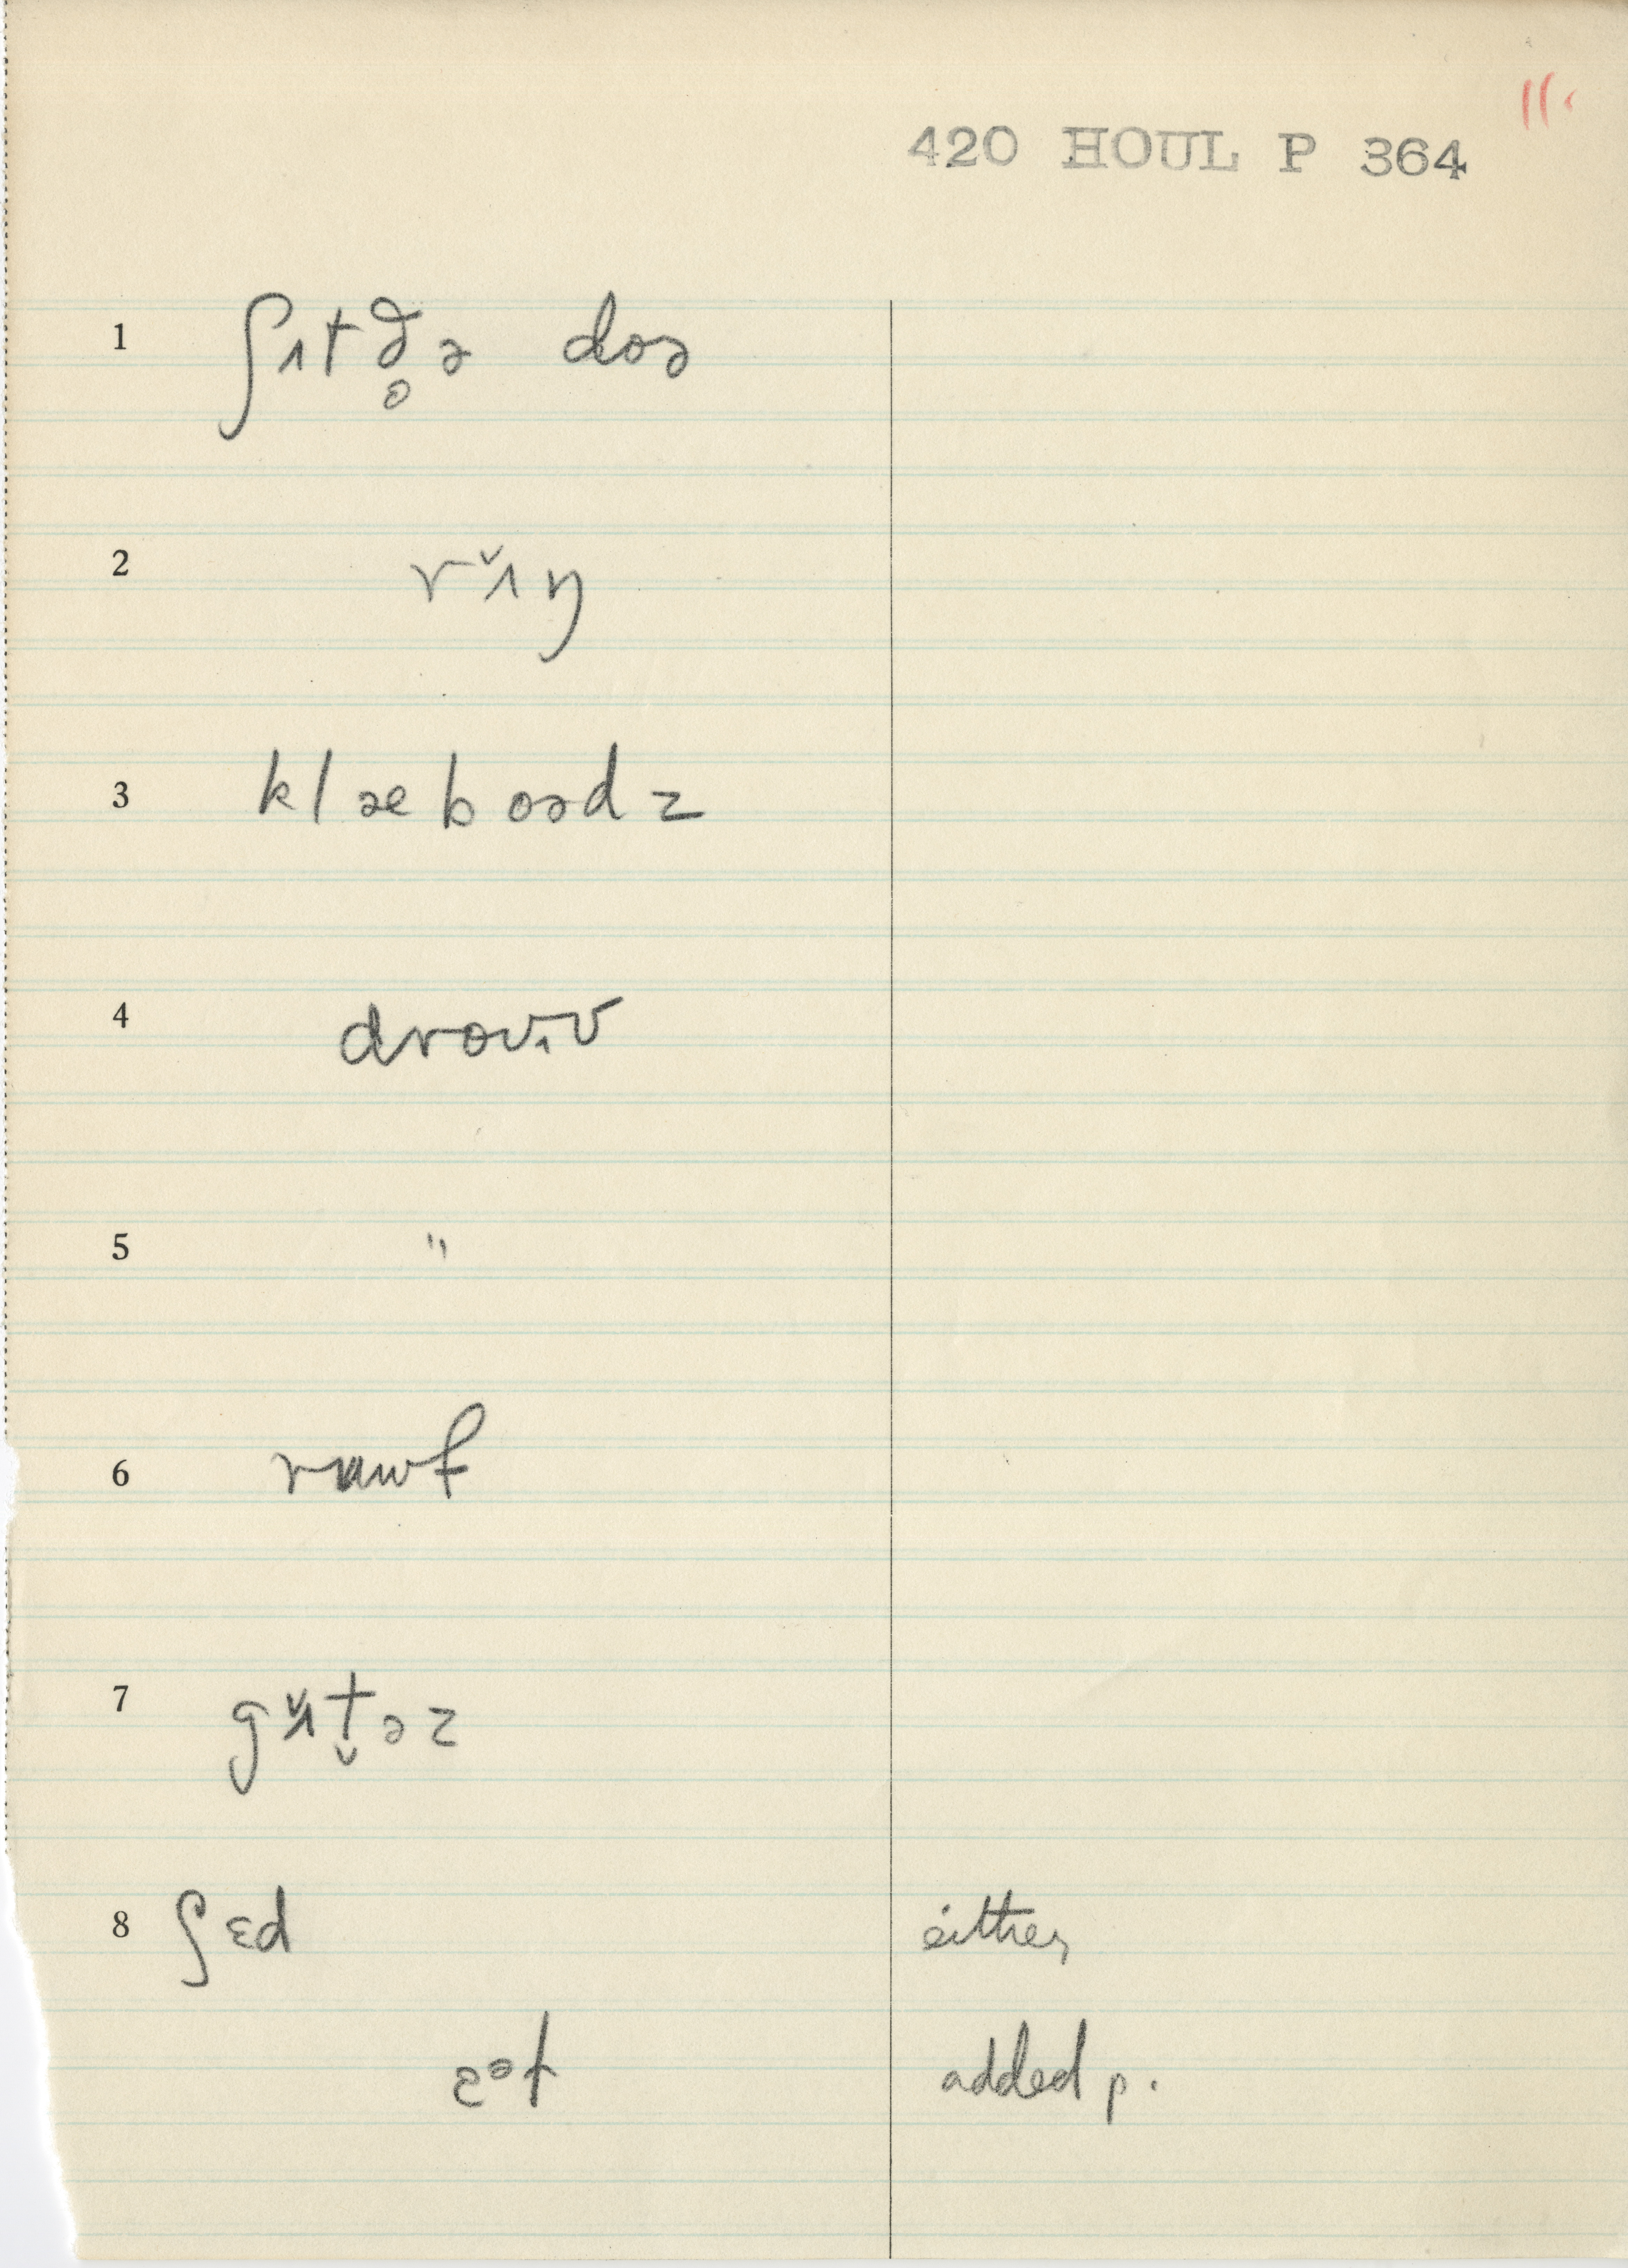 11.
420 HOUL P 364
1 ʃɪtð̥ə doə
2 rɪ̆ŋ
3 klæboədz
4 droᴜɪv
5 "
6 rɐuf
7 gɪ̆t̬əz
8 ʃɛd either
ɛᵊt added p.